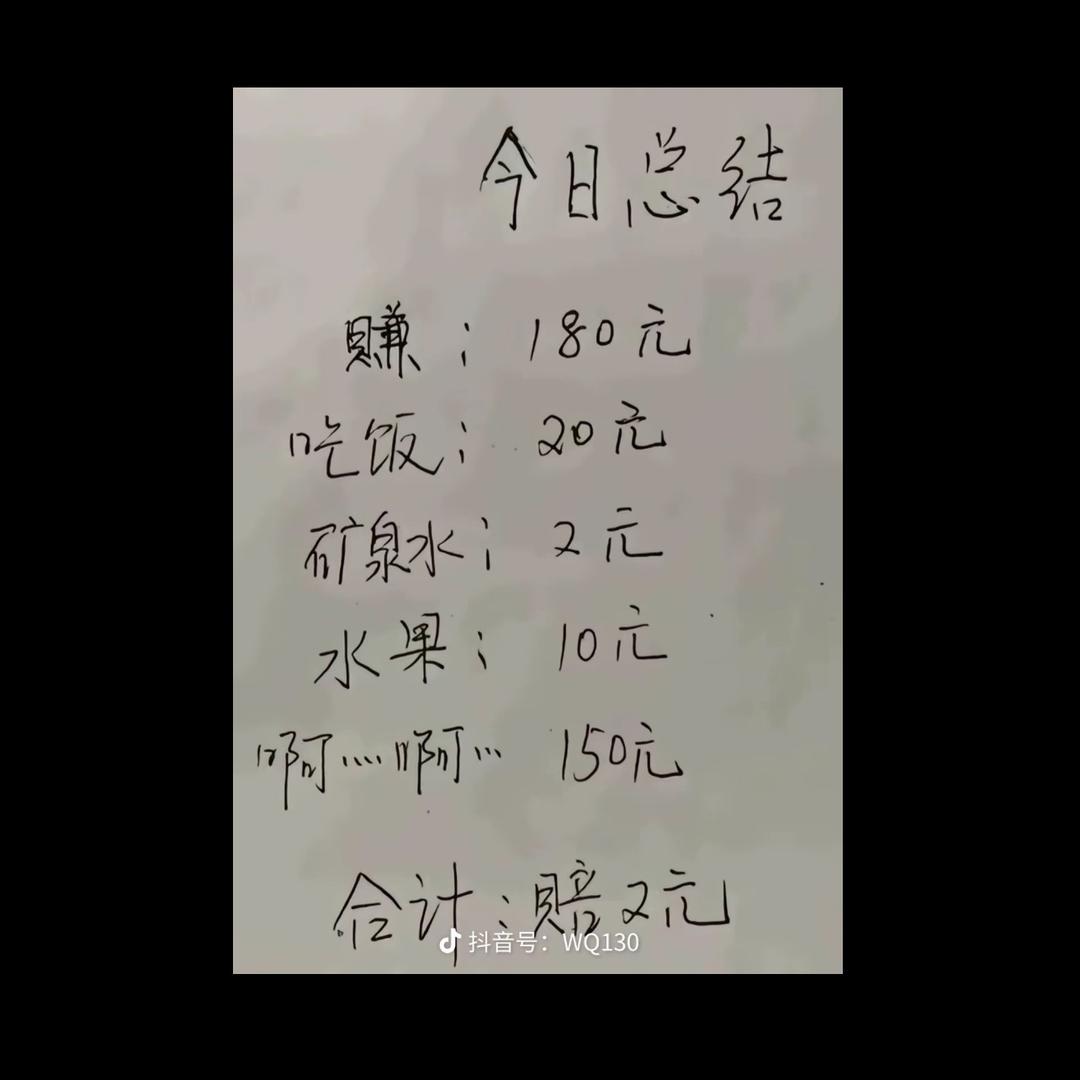 今日总结
賺：180元
吃饭：20元
矿泉水：2元
水果：10元
啊....啊... 150元
合计：賠2元
抖音号：WQ130